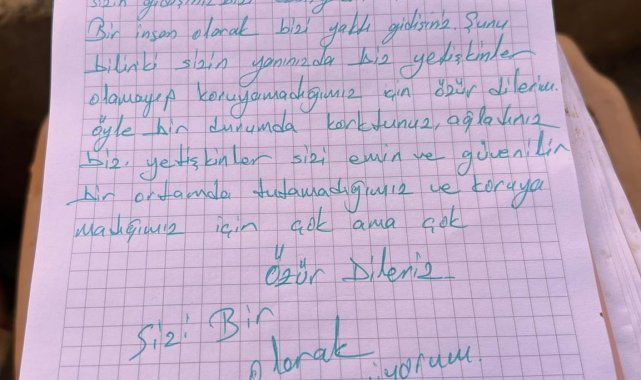 Bir insan olarak bizi yaktı gidişiniz. Şunu
bilinki sizin yanınızda biz yetişkinler
olamayıp koruyamadığımız için özür dilerim.
öyle bir durumda korktunuz, ağladınız
biz yetişkinler sizi emin ve güvenilir
bir ortamda tutamadığımız ve koruya
madığımız için çok ama çok
Özür Dileriz
Sizi Bir
olarak
iyorum.